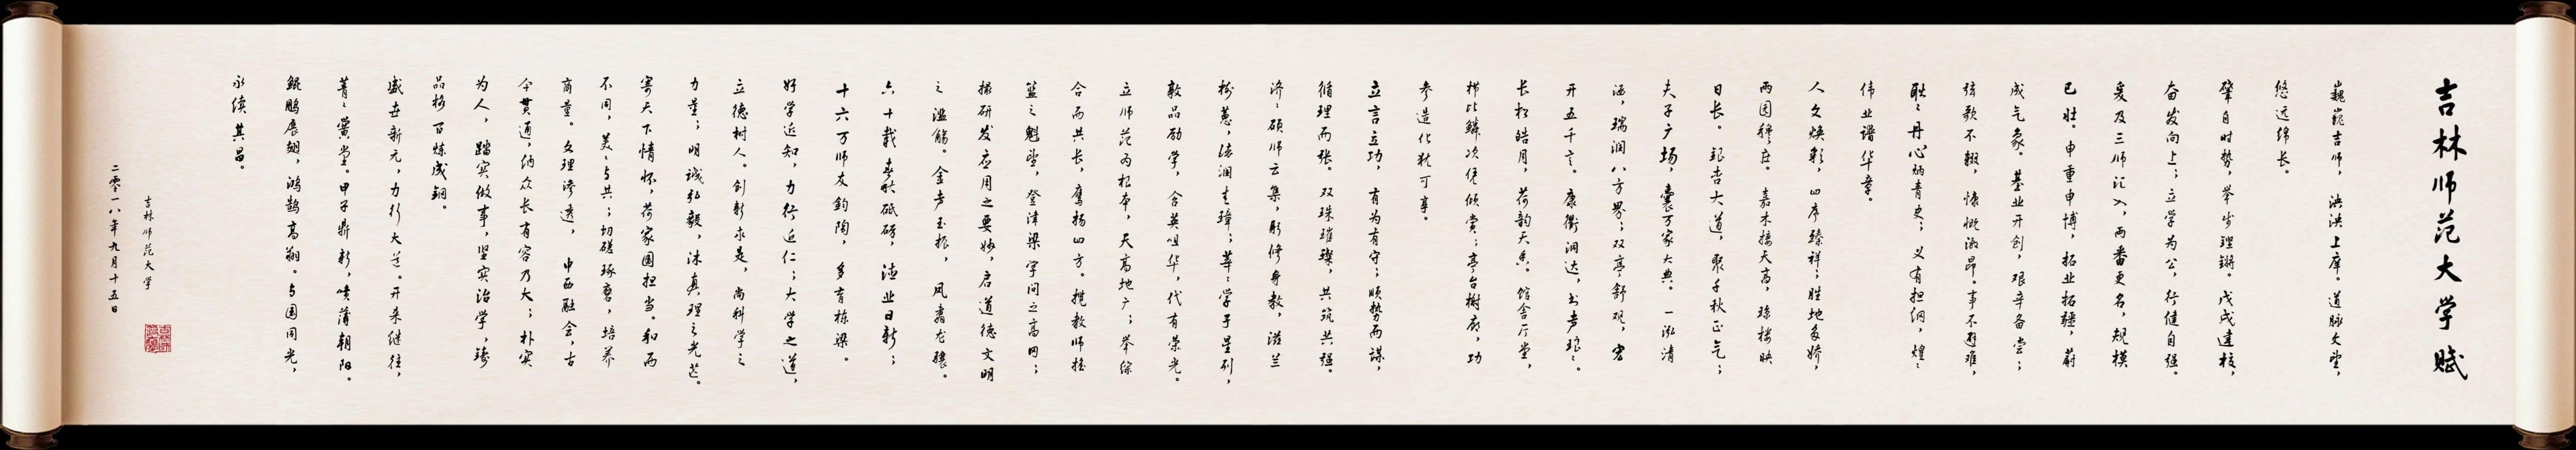 吉林师范大学赋
巍巍吉师，泱泱上庠。道脉文望，
悠远绵长。
肇自时势，举步铿锵。戊戌建校，
奋发向上；立学为公，行健自强。
爰及三师汇入，两番更名，规模
已壮。申重申博，拓业拓疆，蔚
成气象。基业开创，艰辛备尝；
弦歌不辍，慷慨激昂。事不避难，
耿耿丹心炳青史；义有担纲，煌煌
伟业谱华章。
人文焕彩，四序臻祥；胜地多娇，
两园穆庄。嘉木接天高，琼楼映
日长。弘吉大道，聚千秋正气；
夫子广场，囊万家大典。一泓清
涵，瑞润八方界；双亭舒观，宏
开五千言。康衢润达，书声琅琅。
长松皓月，荷韵天香。馆舍厅堂，
栉比鳞次凭倾赏；亭台榭廊，功
参造化犹可享。
立言立功，有为有守；顺势而谋，
循理而张。双珠璀璨，共筑共强。
济济硕师云集，彤修身教，滋兰
树蕙，德润圭璋；莘莘学子星列，
敦品励学，含英咀华，代有荣光。
立师范为根本，天高地广；举综
合而共长，鹰扬四方。揽教师摇
篮之魁望，登津梁学问之高冈；
操研发应用之要妙，启道德文明
之滥觞。金声玉振，凤翥龙骧。
六十载春秋砥砺，德业日新；
十六万师友钧陶，多育栋梁。
好学近知，力行近仁；大学之道，
立德树人。创新求是，尚科学之
力量；明诚弘毅，沐真理之光芒。
寄天下情怀，荷家国担当。和而
不同，美美与共；切磋琢磨，培养
商量。文理渗透，中西融会，古
今贯通，纳众长有容乃大；朴实
为人，踏实做事，坚实治学，铸
品格百炼成钢。
盛世新元，力行大道。开来继往，
菁菁黉堂。甲子鼎新，喷薄朝阳。
鲲鹏展翅，鸿鹄高翔。与国同光，
永续其昌。
吉林师范大学
二零一八年九月十五日